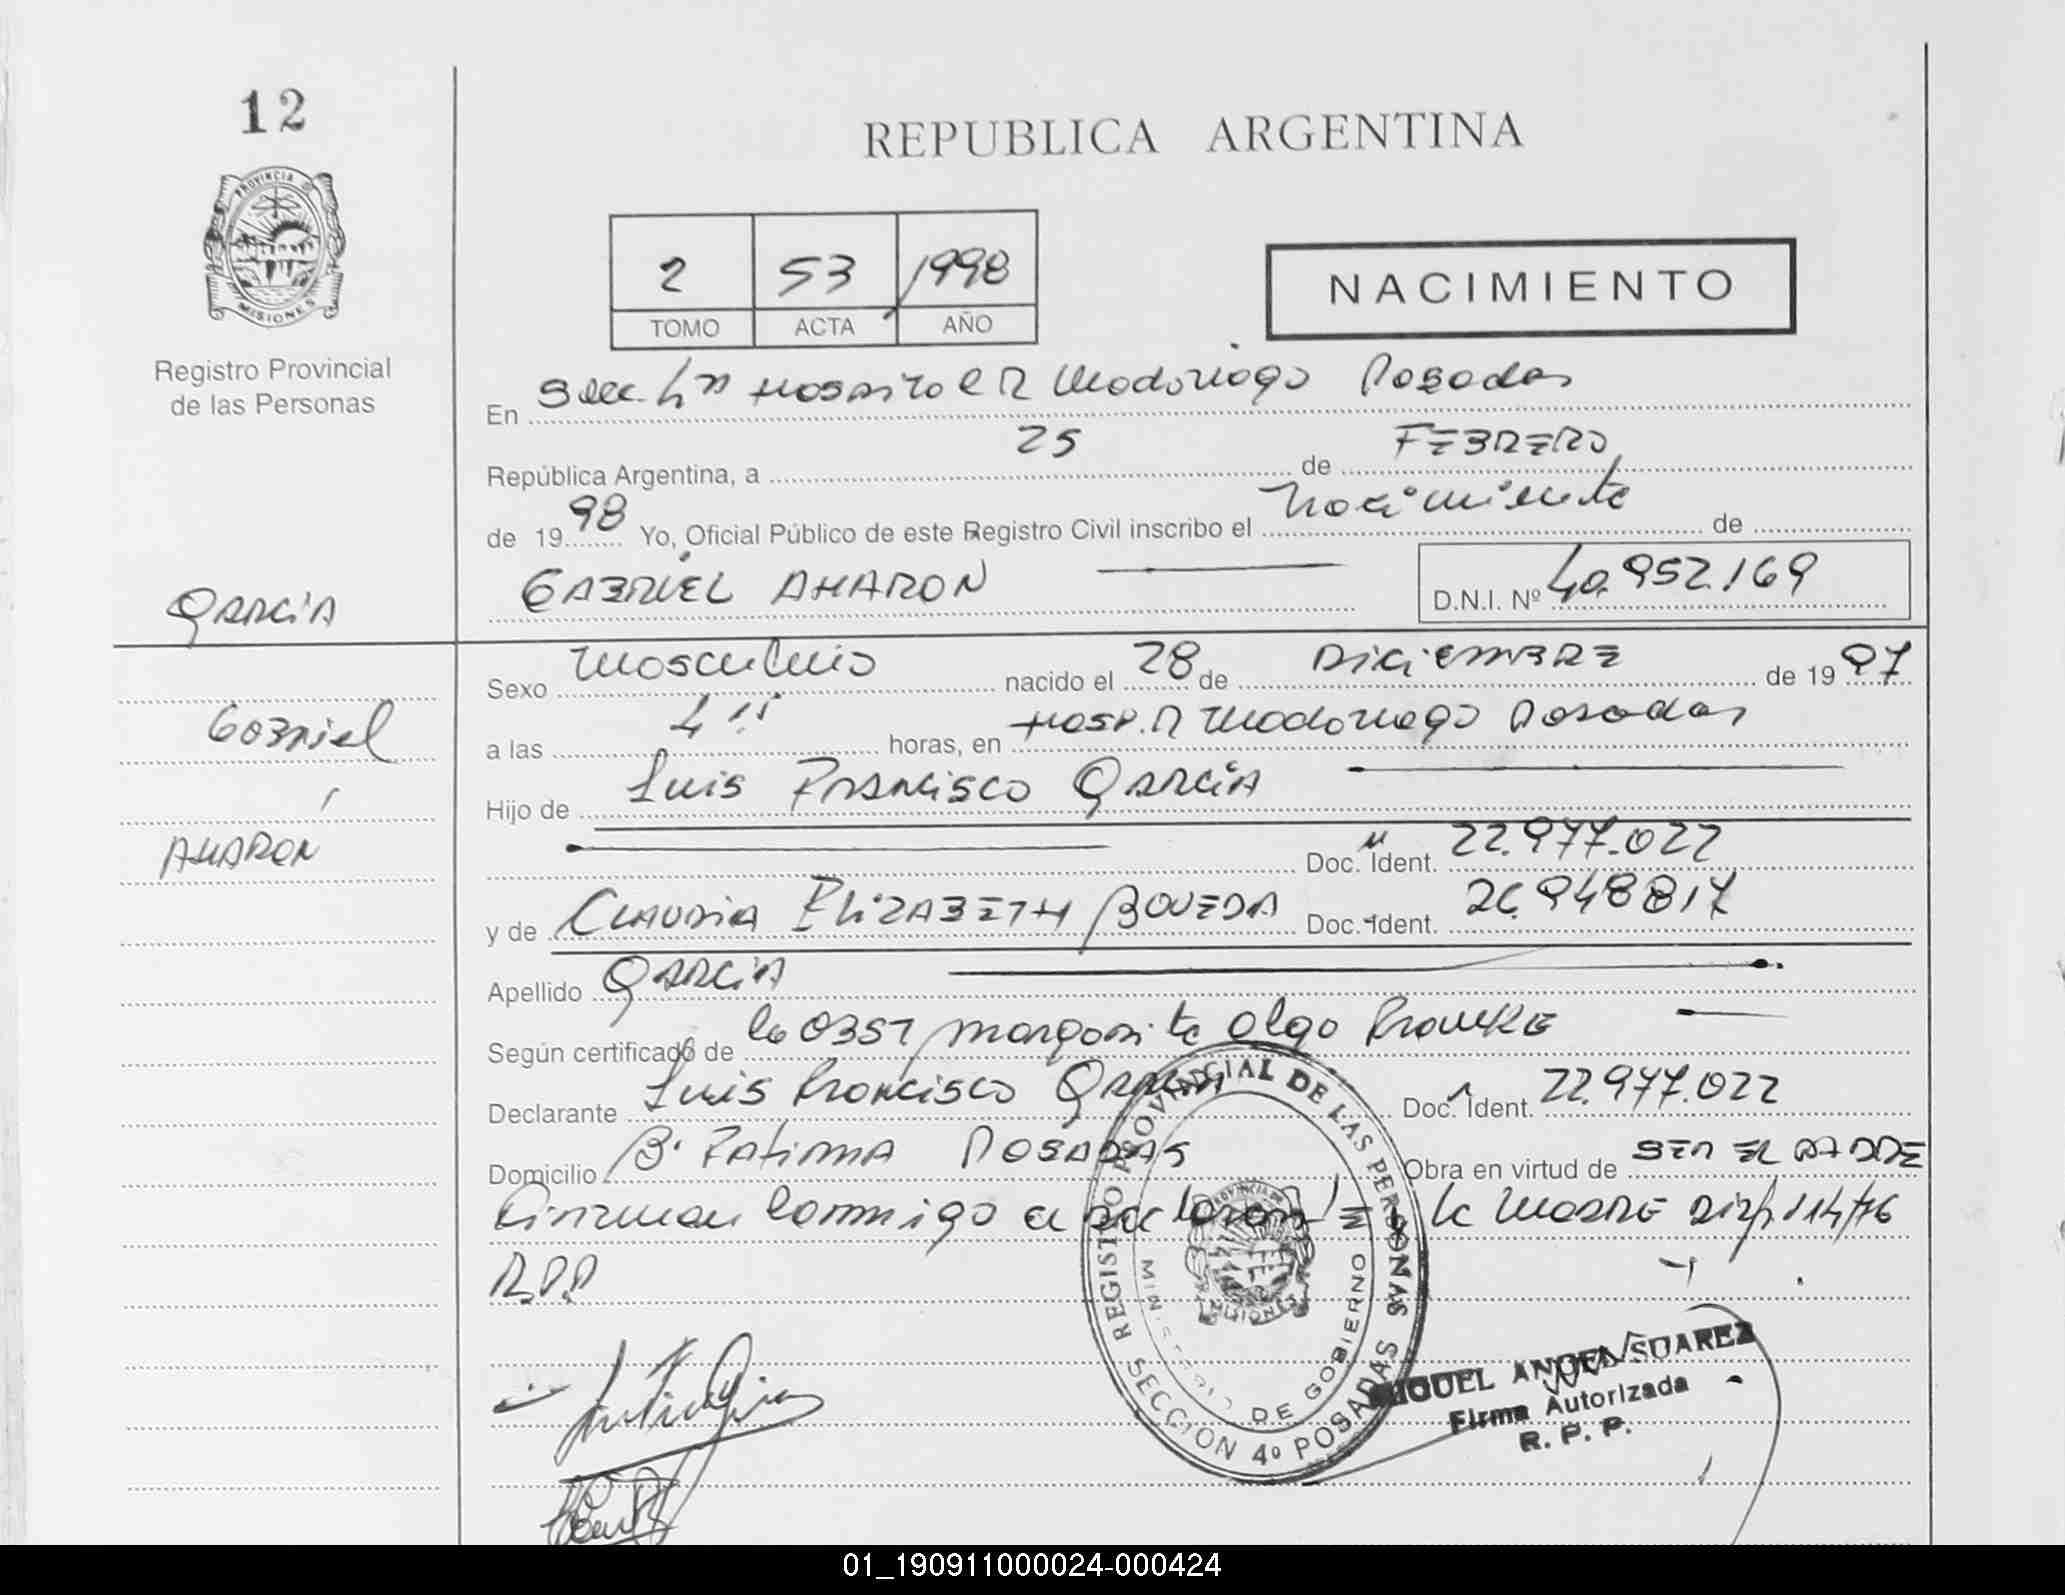 12
REPUBLICA ARGENTINA
PROVINCIA DE
MISIONES
Registro Provincial
de las Personas
2 53 1998
TOMO ACTA AÑO
NACIMIENTO
En Secc. 4ta Hospital R Madariaga Posadas
República Argentina, a 25 de FEBRERO
de 1998 Yo, Oficial Público de este Registro Civil inscribo el Nacimiento de
GABRIEL AHARON D.N.I. Nº 40.952.169
GARCIA
Gabriel
AHARON
Sexo Masculino nacido el 28 de DICIEMBRE de 1997
a las 4 horas, en Hosp. R Madariaga Posadas
Hijo de Luis FRANCISCO GARCIA
Doc. Ident. 22.977.022
y de CLAUDIA ELIZABETH BOVEDA Doc. Ident. 26.948817
Apellido GARCIA
Según certificado de Margarita Olga
Declarante Luis Francisco GARCIA Doc. Ident. 22.977.022
Domicilio Bº FATIMA POSADAS Obra en virtud de SER EL PADRE
Firman conmigo el la MADRE Disp. 114/76
R.P.P
REGISTRO PROVINCIAL DE LAS PERSONAS
SECCION 4º POSADAS
MINISTERIO DE GOBIERNO
PROVINCIA DE
MISIONES
MIGUEL ANGEL SUAREZ
Firma Autorizada
R. P. P.
01_190911000024-000424